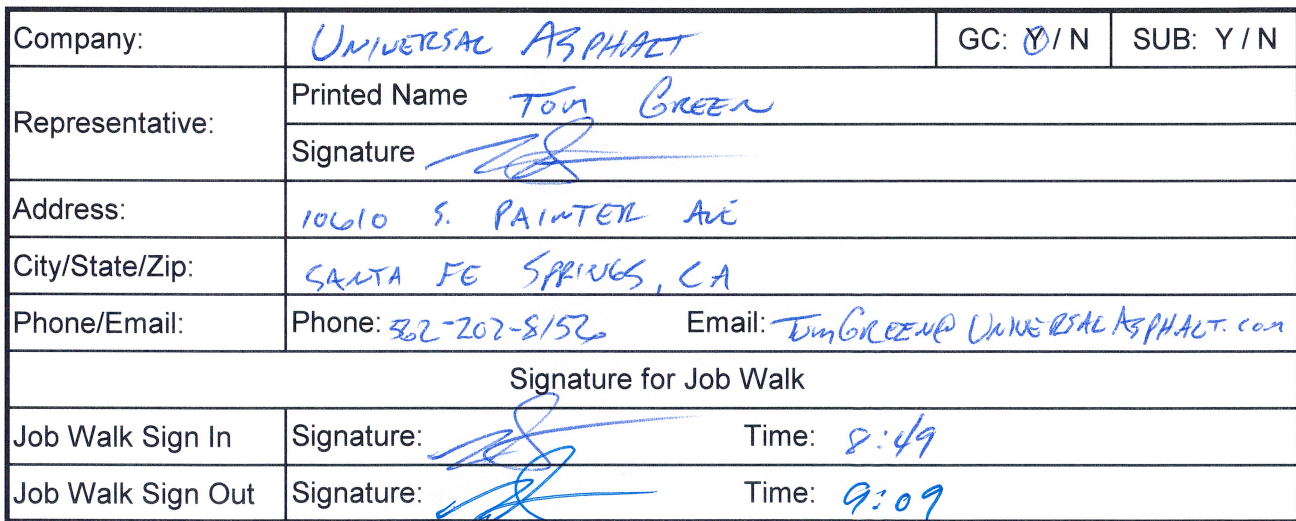 Company: UNIVERSAL ASPHALT GC: Y / N SUB: Y / N
Representative: Printed Name TOM GREEN
Signature
Address: 10610 S. PAINTER AVE
City/State/Zip: SANTA FE SPRINGS, CA
Phone/Email: Phone: 562-202-8152 Email: TOMGREEN@UNIVERSALASPHALT.COM
Signature for Job Walk
Job Walk Sign In Signature: Time: 8:49
Job Walk Sign Out Signature: Time: 9:09